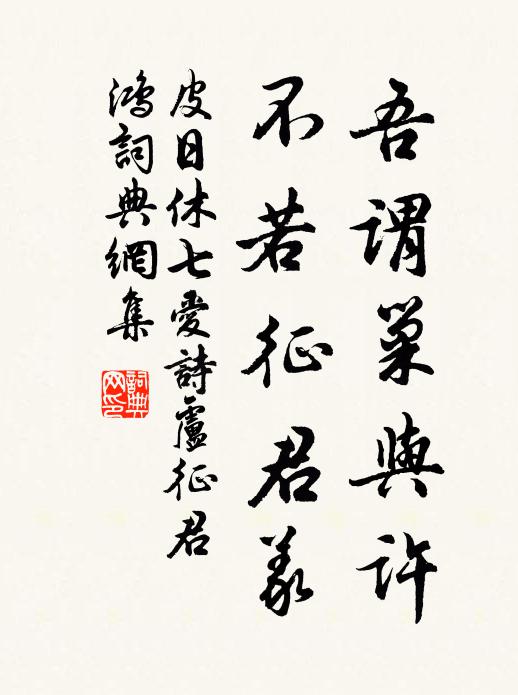 吾謂巢與許
不若征君義
皮日休七愛詩盧征君
鴻詞典網集
詞典
网印